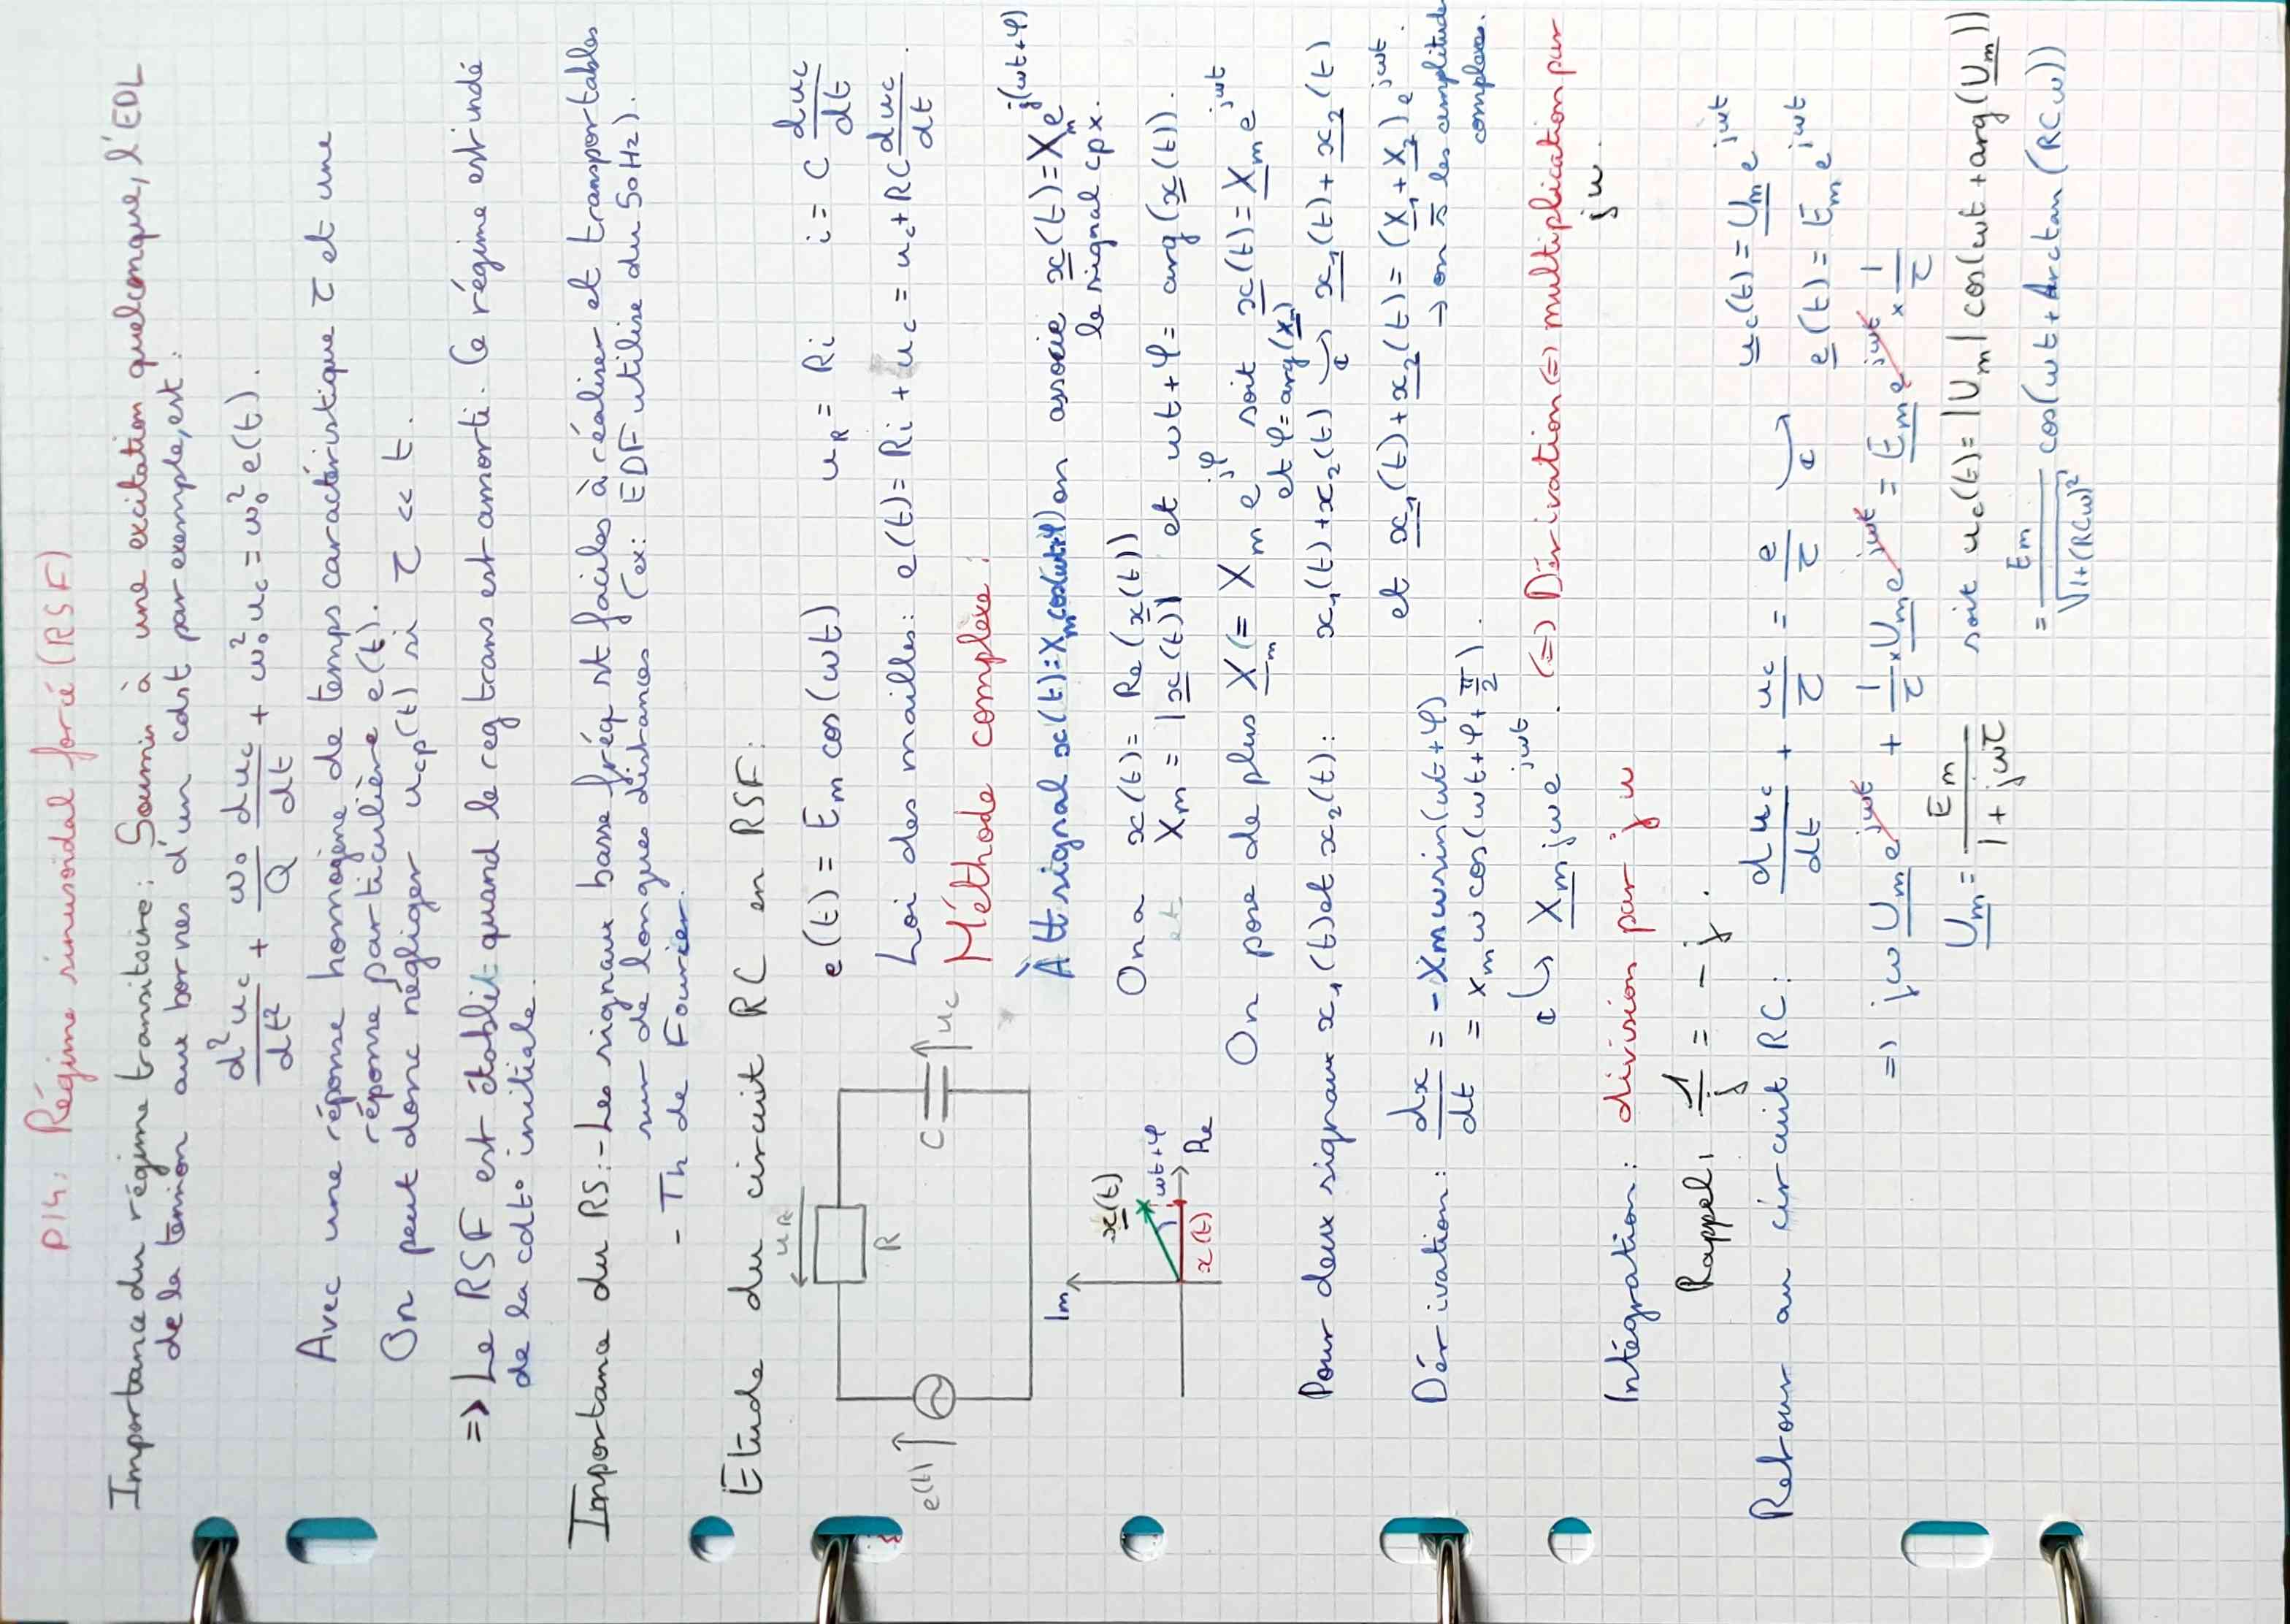 P14: Régime sinusoïdal forcé (RSF)
Importance du régime transitoire: Soumis à une excitation quelconque, l'EDL
de la tension aux bornes d'un cdst par exemple, est:
d²uc/dt² + ω₀/Q duc/dt + ω₀² uc = ω₀² e(t).
Avec une réponse homogène de temps caractéristique τ et une
réponse particulière e(t).
On peut donc négliger ucp(t) si τ << t.
=> Le RSF est établit quand le reg trans est amorti. Ce régime est indé
de la cdt° initiale.
Importance du RS: - Les signaux basse fréq st faciles à réaliser et transportables
sur de longues distances (ex: EDF utilise du 50Hz).
- Th de Fourier.
Etude du circuit RC en RSF:
e(t) uR R C uc
e(t) = Em cos(ωt) uR = Ri i = C duc/dt
Loi des mailles: e(t) = Ri + uc = uc + RC duc/dt.
Méthode complexe:
À tt signal x(t) = Xm cos(ωt+φ) on associe x(t) = Xm e^j(ωt+φ)
le signal cpx.
Im x(t) ωt+φ x(t) Re
On a x(t) = Re(x(t))
et Xm = |x(t)| et ωt+φ = arg(x(t)).
On pose de plus Xm = Xm e^jφ soit x(t) = Xm e^jωt
et φ = arg(Xm)
Pour deux signaux x₁(t) et x₂(t): x₁(t) + x₂(t) ↪ x₁(t) + x₂(t)
et x₁(t) + x₂(t) = (X₁ + X₂) e^jωt.
→ on les amplitudes
complexes.
Dérivation: dx/dt = - Xm ω sin(ωt+φ)
= Xm ω cos(ωt+φ+π/2).
↪ Xm jω e^jωt. (=) Dérivation (=) multiplication par
jω.
Intégration: division par jω
Rappel: 1/j = - j.
Retour au circuit RC: duc/dt + uc/τ = e/τ ↪ uc(t) = Um e^jωt
e(t) = Em e^jωt
=> jω Um e^jωt + 1/τ × Um e^jωt = Em e^jωt × 1/τ
Um = Em/(1+jωτ) soit uc(t) = |Um| cos(ωt + arg(Um))
= Em/√(1+(RCω)²) cos(ωt + Arctan(RCω))